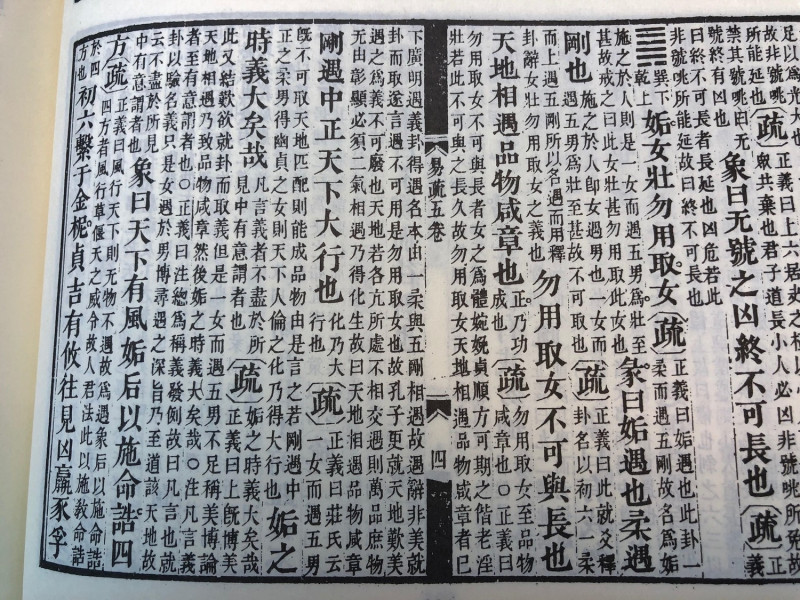 足以爲光大也
故非號咷
所能延也〔疏〕正義曰上六居夬之極以
眾共棄也君子道長小人必凶非號咷所免故
禁其號咷曰无
號終有凶也
象曰无號之凶終不可長也〔疏〕正義
曰終不可長者長延也凶危若此
非號咷所能延故曰終不可長也
䷫巽下
乾上
姤女壯勿用取女〔疏〕正義曰姤遇也此卦一
柔而遇五剛故名爲姤
施之於人則是一女而遇五男爲壯至
甚故戒之曰此女壯甚勿用取此女也
彖曰姤遇也柔遇
剛也
施之於人卽女遇男也一女而
遇五男爲壯至甚故不可取也〔疏〕正義曰此就爻釋
卦名以初六一柔
而上遇五剛所以名遇而用釋
卦辭女壯勿用取女之義也
勿用取女不可與長也
天地相遇品物咸章也
正乃功
成也〔疏〕勿用取女至品物
咸章也○正義曰
勿用取女不可與長者女之爲體婉娩貞順方可期之偕老淫
壯若此不可與之長久故勿用取女天地相遇品物咸章者已
易疏五卷
四
下廣明遇義卦得遇名本由一柔與五剛相遇故遇辭非美就
卦而取遂言遇不可用是勿用取女也故孔子更就天地歎美
遇之爲義不可廢也天地若各亢所處不相交遇則萬品庶物
無由彰顯必須二氣相遇乃得化生故曰天地相遇品物咸章
剛遇中正天下大行也
化乃大
行也〔疏〕正義曰莊氏云
一女而遇五男
旣不可取天地匹配則能成品物由是言之若剛遇中
正之柔男得幽貞之女則天下人倫之化乃得大行也
姤之
時義大矣哉
凡言義者不盡於所
見中有意謂者也〔疏〕姤之時義大矣哉
正義曰上旣博美
此又結歎欲就卦而取義但是一女而遇五男不足稱美博論
天地相遇乃致品物咸章然後姤之時義大矣哉○注凡言義
者至有意謂者也○正義曰注總爲稱義發例故曰凡言也就
卦以驗名義只是女遇於男博尋遇之深旨乃至道該天地故
云不盡於所見
中有意謂者也
象曰天下有風姤后以施命誥四
方〔疏〕正義曰風行天下則无物不遇故爲遇象后以施命誥
四方者風行草偃天之威令故人君法此以施教命誥
於四
方也
初六繫于金柅貞吉有攸往見凶羸豕孚